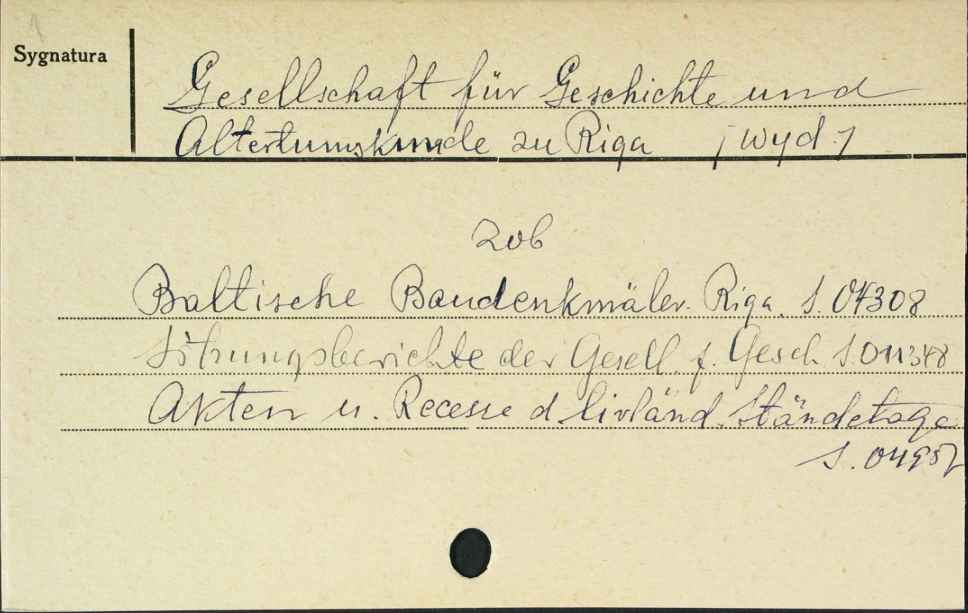 Sygnatura
Gesellschaft für Geschichte und
Altertumskunde zu Riga / wyd. /
zob
Baltische Baudenkmäler. Riga. S. 04308
Sitzungsberichte der Gesell. f. Gesch. S. 011348
Akten u. Recesse d livländ. Ständetage
S. 04952